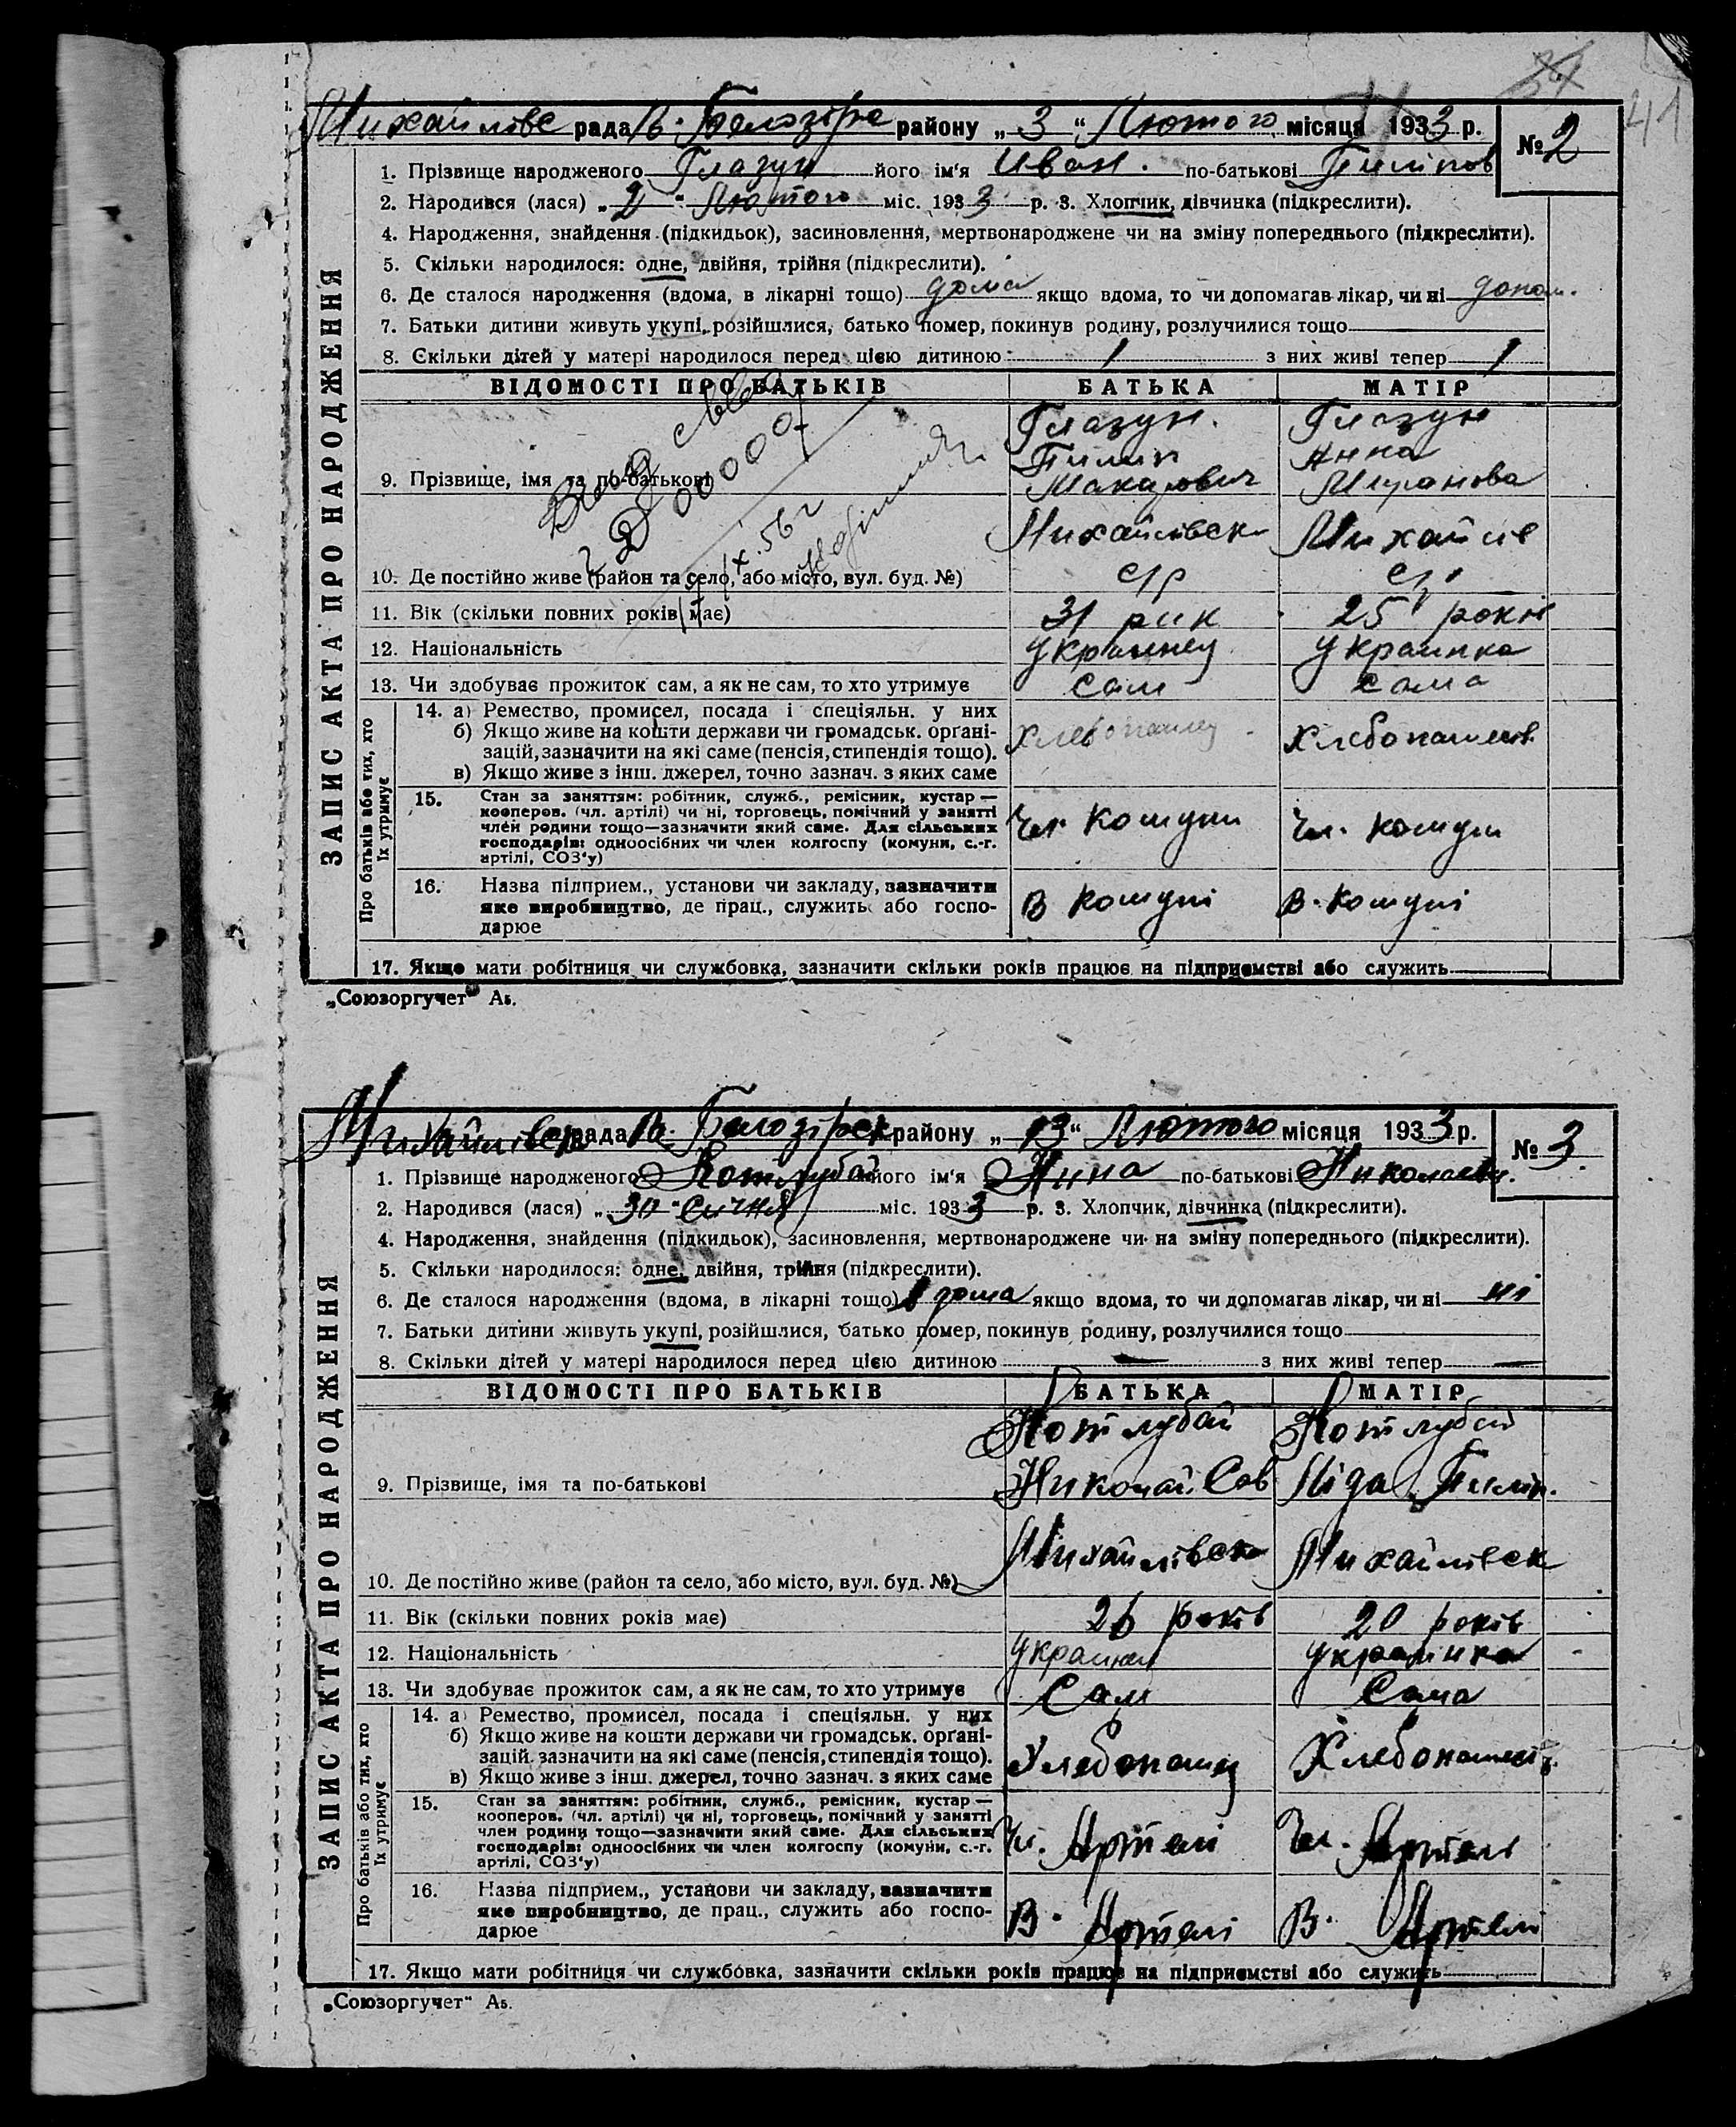 41
Михайлівс рада В. Белозірс району „ 3 “ Лютого місяця 1933 р. № 2
1. Прізвище народженого Глазун його ім'я Иван. по-батькові Пилипов
2. Народився (лася) „ 2 “ Лютого міс. 1933 р. 3. Хлопчик, дівчинка (підкреслити).
4. Народження, знайдення (підкидьок), засиновлення, мертвонароджене чи на зміну попереднього (підкреслити).
5. Скільки народилося: одне, двійня, трійня (підкреслити).
6. Де сталося народження (вдома, в лікарні тощо) дома якщо вдома, то чи допомагав лікар, чи ні допом.
7. Батьки дитини живуть укупі, розійшлися, батько помер, покинув родину, розлучилися тощо
8. Скільки дітей у матері народилося перед цією дитиною 1 з них живі тепер 1
ЗАПИС АКТА ПРО НАРОДЖЕННЯ
ВІДОМОСТІ ПРО БАТЬКІВ БАТЬКА МАТІР
Глазун. Глазун
Пилип Анна
9. Прізвище, імя та по-батькові Макарович Миронова
Михайлівськ Михайлів
10. Де постійно живе (район та село, або місто, вул. буд. №) с/р с/р
11. Вік (скільки повних років має) 31 рик 25 років
12. Національність Украинец Украинка
13. Чи здобуває прожиток сам, а як не сам, то хто утримує Сам Сама
Про батьків або тих, хто їх утримує
14. а) Ремество, промисел, посада і спеціяльн. у них
б) Якщо живе на кошти держави чи громадськ. орґані-
зацій, зазначити на які саме (пенсія, стипендія тощо). Хлебопашец Хлебопашест.
в) Якщо живе з інш. джерел, точно зазнач. з яких саме
15. Стан за заняттям: робітник, служб., ремісник, кустар —
кооперов. (чл. артілі) чи ні, торговець, помічний у занятті
член родини тощо—зазначити який саме. Для сільських Чл. Комуни Чл. Комун
господарів: одноосібних чи член колгоспу (комуни, с.-г.
артілі, СОЗ'у)
16. Назва підприєм., установи чи закладу, зазначити
яке виробництво, де прац., служить або госпо- В Комуні В. Комуні
дарює
17. Якщо мати робітниця чи службовка, зазначити скільки років працює на підприємстві або служить
„Союзоргучет“ А5.
Михайлівськ рада В. Белозірск району „ 13 “ Лютого місяця 1933 р. № 3.
1. Прізвище народженого Котлубай його ім'я Нина по-батькові Николаевн.
2. Народився (лася) „ 30 “ Січня міс. 1933 р. 3. Хлопчик, дівчинка (підкреслити).
4. Народження, знайдення (підкидьок), засиновлення, мертвонароджене чи на зміну попереднього (підкреслити).
5. Скільки народилося: одне, двійня, трійня (підкреслити).
6. Де сталося народження (вдома, в лікарні тощо) в дома якщо вдома, то чи допомагав лікар, чи ні ні
7. Батьки дитини живуть укупі, розійшлися, батько помер, покинув родину, розлучилися тощо
8. Скільки дітей у матері народилося перед цією дитиною — з них живі тепер —
ЗАПИС АКТА ПРО НАРОДЖЕННЯ
ВІДОМОСТІ ПРО БАТЬКІВ БАТЬКА МАТІР
Котлубай Котлубай
9. Прізвище, імя та по-батькові Николай Сав Ліда Пилип.
Михайлівськ Михайлівск
10. Де постійно живе (район та село, або місто, вул. буд. №)
11. Вік (скільки повних років має) 26 років 20 років
12. Національність Украинец Украинка
13. Чи здобуває прожиток сам, а як не сам, то хто утримує Сам Сама
Про батьків або тих, хто їх утримує
14. а) Ремество, промисел, посада і спеціяльн. у них
б) Якщо живе на кошти держави чи громадськ. орґані-
зацій, зазначити на які саме (пенсія, стипендія тощо). Хлебопашец Хлебопашест.
в) Якщо живе з інш. джерел, точно зазнач. з яких саме
15. Стан за заняттям: робітник, служб., ремісник, кустар —
кооперов. (чл. артілі) чи ні, торговець, помічний у занятті
член родини тощо—зазначити який саме. Для сільських Чл. Артелі Чл. Артель
господарів: одноосібних чи член колгоспу (комуни, с.-г.
артілі, СОЗ'у)
16. Назва підприєм., установи чи закладу, зазначити
яке виробництво, де прац., служить або госпо- В. Артелі В. Артелі
дарює
17. Якщо мати робітниця чи службовка, зазначити скільки років працює на підприємстві або служить
„Союзоргучет“ А5.